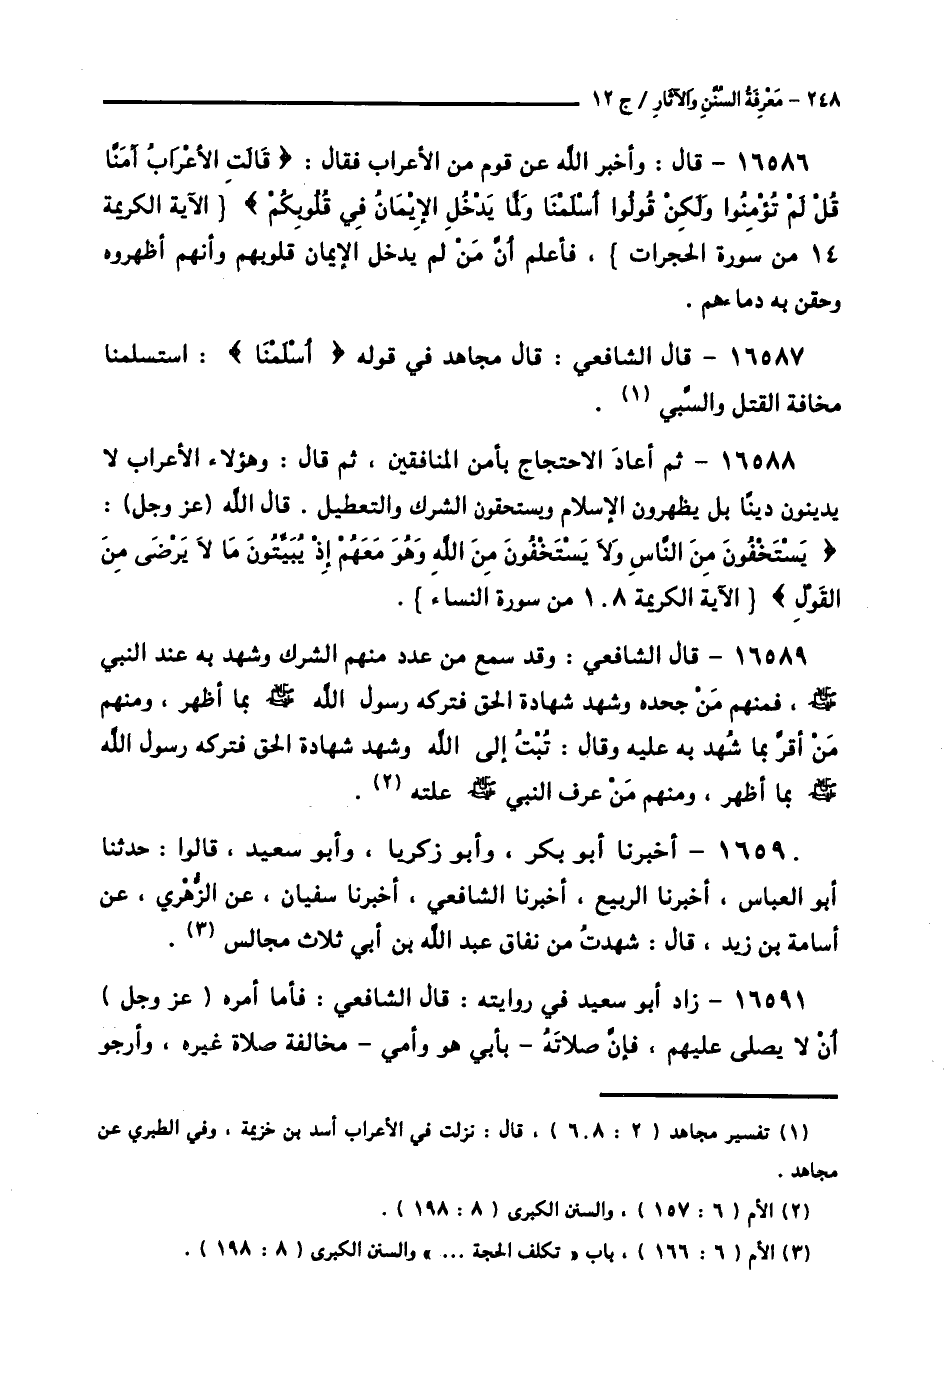 ٢٤٨ - مَعْرِفَةُ السُّنَنِ وَالآثَارِ / ج ١٢
١٦٥٨٦ - قال : وأخبر اللّه عن قوم من الأعراب فقال : ﴿ قَالَتِ الأَعْرَابُ آمَنَّا
قُلْ لَمْ تُؤْمِنُوا وَلَكِنْ قُولُوا أَسْلَمْنَا وَلَمَّا يَدْخُلِ الإِيْمَانُ فِي قُلُوبِكُمْ ﴾ { الآية الكريمة
١٤ من سورة الحجرات } ، فأعلم أنَّ مَنْ لم يدخل الإيمان قلوبهم وأنهم أظهروه
وحقن به دماءهم .
١٦٥٨٧ - قال الشافعي : قال مجاهد في قوله ﴿ أَسْلَمْنَا ﴾ : استسلمنا
مخافة القتل والسَّبي (١) .
١٦٥٨٨ - ثم أعادَ الاحتجاج بأمن المنافقين ، ثم قال : وهؤلاء الأعراب لا
يدينون دينًا بل يظهرون الإسلام ويستحقون الشرك والتعطيل . قال اللّه (عز وجل) :
﴿ يَسْتَخْفُونَ مِنَ النَّاسِ وَلاَ يَسْتَخْفُونَ مِنَ اللّهِ وَهُوَ مَعَهُمْ إِذْ يُبَيِّتُونَ مَا لاَ يَرْضَى مِنَ
القَوْلِ ﴾ { الآية الكريمة ١٠٨ من سورة النساء } .
١٦٥٨٩ - قال الشافعي : وقد سمع من عدد منهم الشرك وشهد به عند النبي
ﷺ ، فمنهم مَنْ جحده وشهد شهادة الحق فتركه رسول اللّه ﷺ بما أظهر ، ومنهم
مَنْ أقرَّ بما شُهد به عليه وقال : تُبْتُ إلى اللّه وشهد شهادة الحق فتركه رسول اللّه
ﷺ بما أظهر ، ومنهم مَنْ عرف النبي ﷺ علته (٢) .
١٦٥٩٠ - أخبرنا أبو بكر ، وأبو زكريا ، وأبو سعيد ، قالوا : حدثنا
أبو العباس ، أخبرنا الربيع ، أخبرنا الشافعي ، أخبرنا سفيان ، عن الزُّهْري ، عن
أسامة بن زيد ، قال : شهدتُ من نفاق عبد اللّه بن أبي ثلاث مجالس (٣) .
١٦٥٩١ - زاد أبو سعيد في روايته : قال الشافعي : فأما أمره ( عز وجل )
أنْ لا يصلى عليهم ، فإنَّ صلاتَهُ - بأبي هو وأمي - مخالفة صلاة غيره ، وأرجو
(١) تفسير مجاهد ( ٢ : ٦٠٨ ) ، قال : نزلت في الأعراب أسد بن خزيمة ، وفي الطبري عن
مجاهد .
(٢) الأم ( ٦ : ١٥٧ ) ، والسنن الكبرى ( ٨ : ١٩٨ ) .
(٣) الأم ( ٦ : ١٦٦ ) ، باب « تكلف الحجة ... » والسنن الكبرى ( ٨ : ١٩٨ ) .